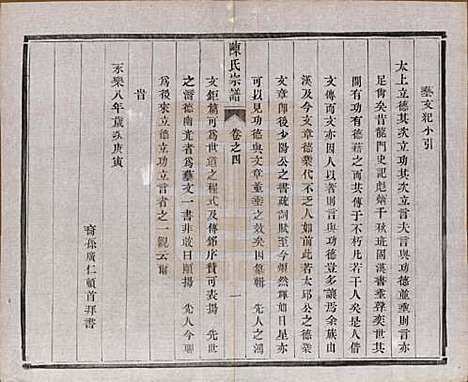 藝文紀小引
太上立德其次立功其次立言夫言與功德並重則言亦
綦可矣昔龍門史記彪炳千秋班固漢書並尊奕世其
間有功有德藉之而其傳于不朽凡若干人矣是人借
文傳而文亦因人以著則言與功德豈多讓焉余族由
漢及今文章德業代不乏人如前此若太邱公之德業
文章即後少陽公之書疏詞賦至今頌然輝如日星亦
可以見功德與文章並垂之效矣因纂輯 先人之鴻
文鉅篇可為世道之程式及傳銘序贊可表揚 先人
之潛德南光者為藝文一書非敢曰顯揚 先人今聊
為後來立德立功立言者之一觀云爾
旹
永樂八年歲次庚寅
裔孫廣仁頓首拜書
陳氏宗譜
卷之四
一